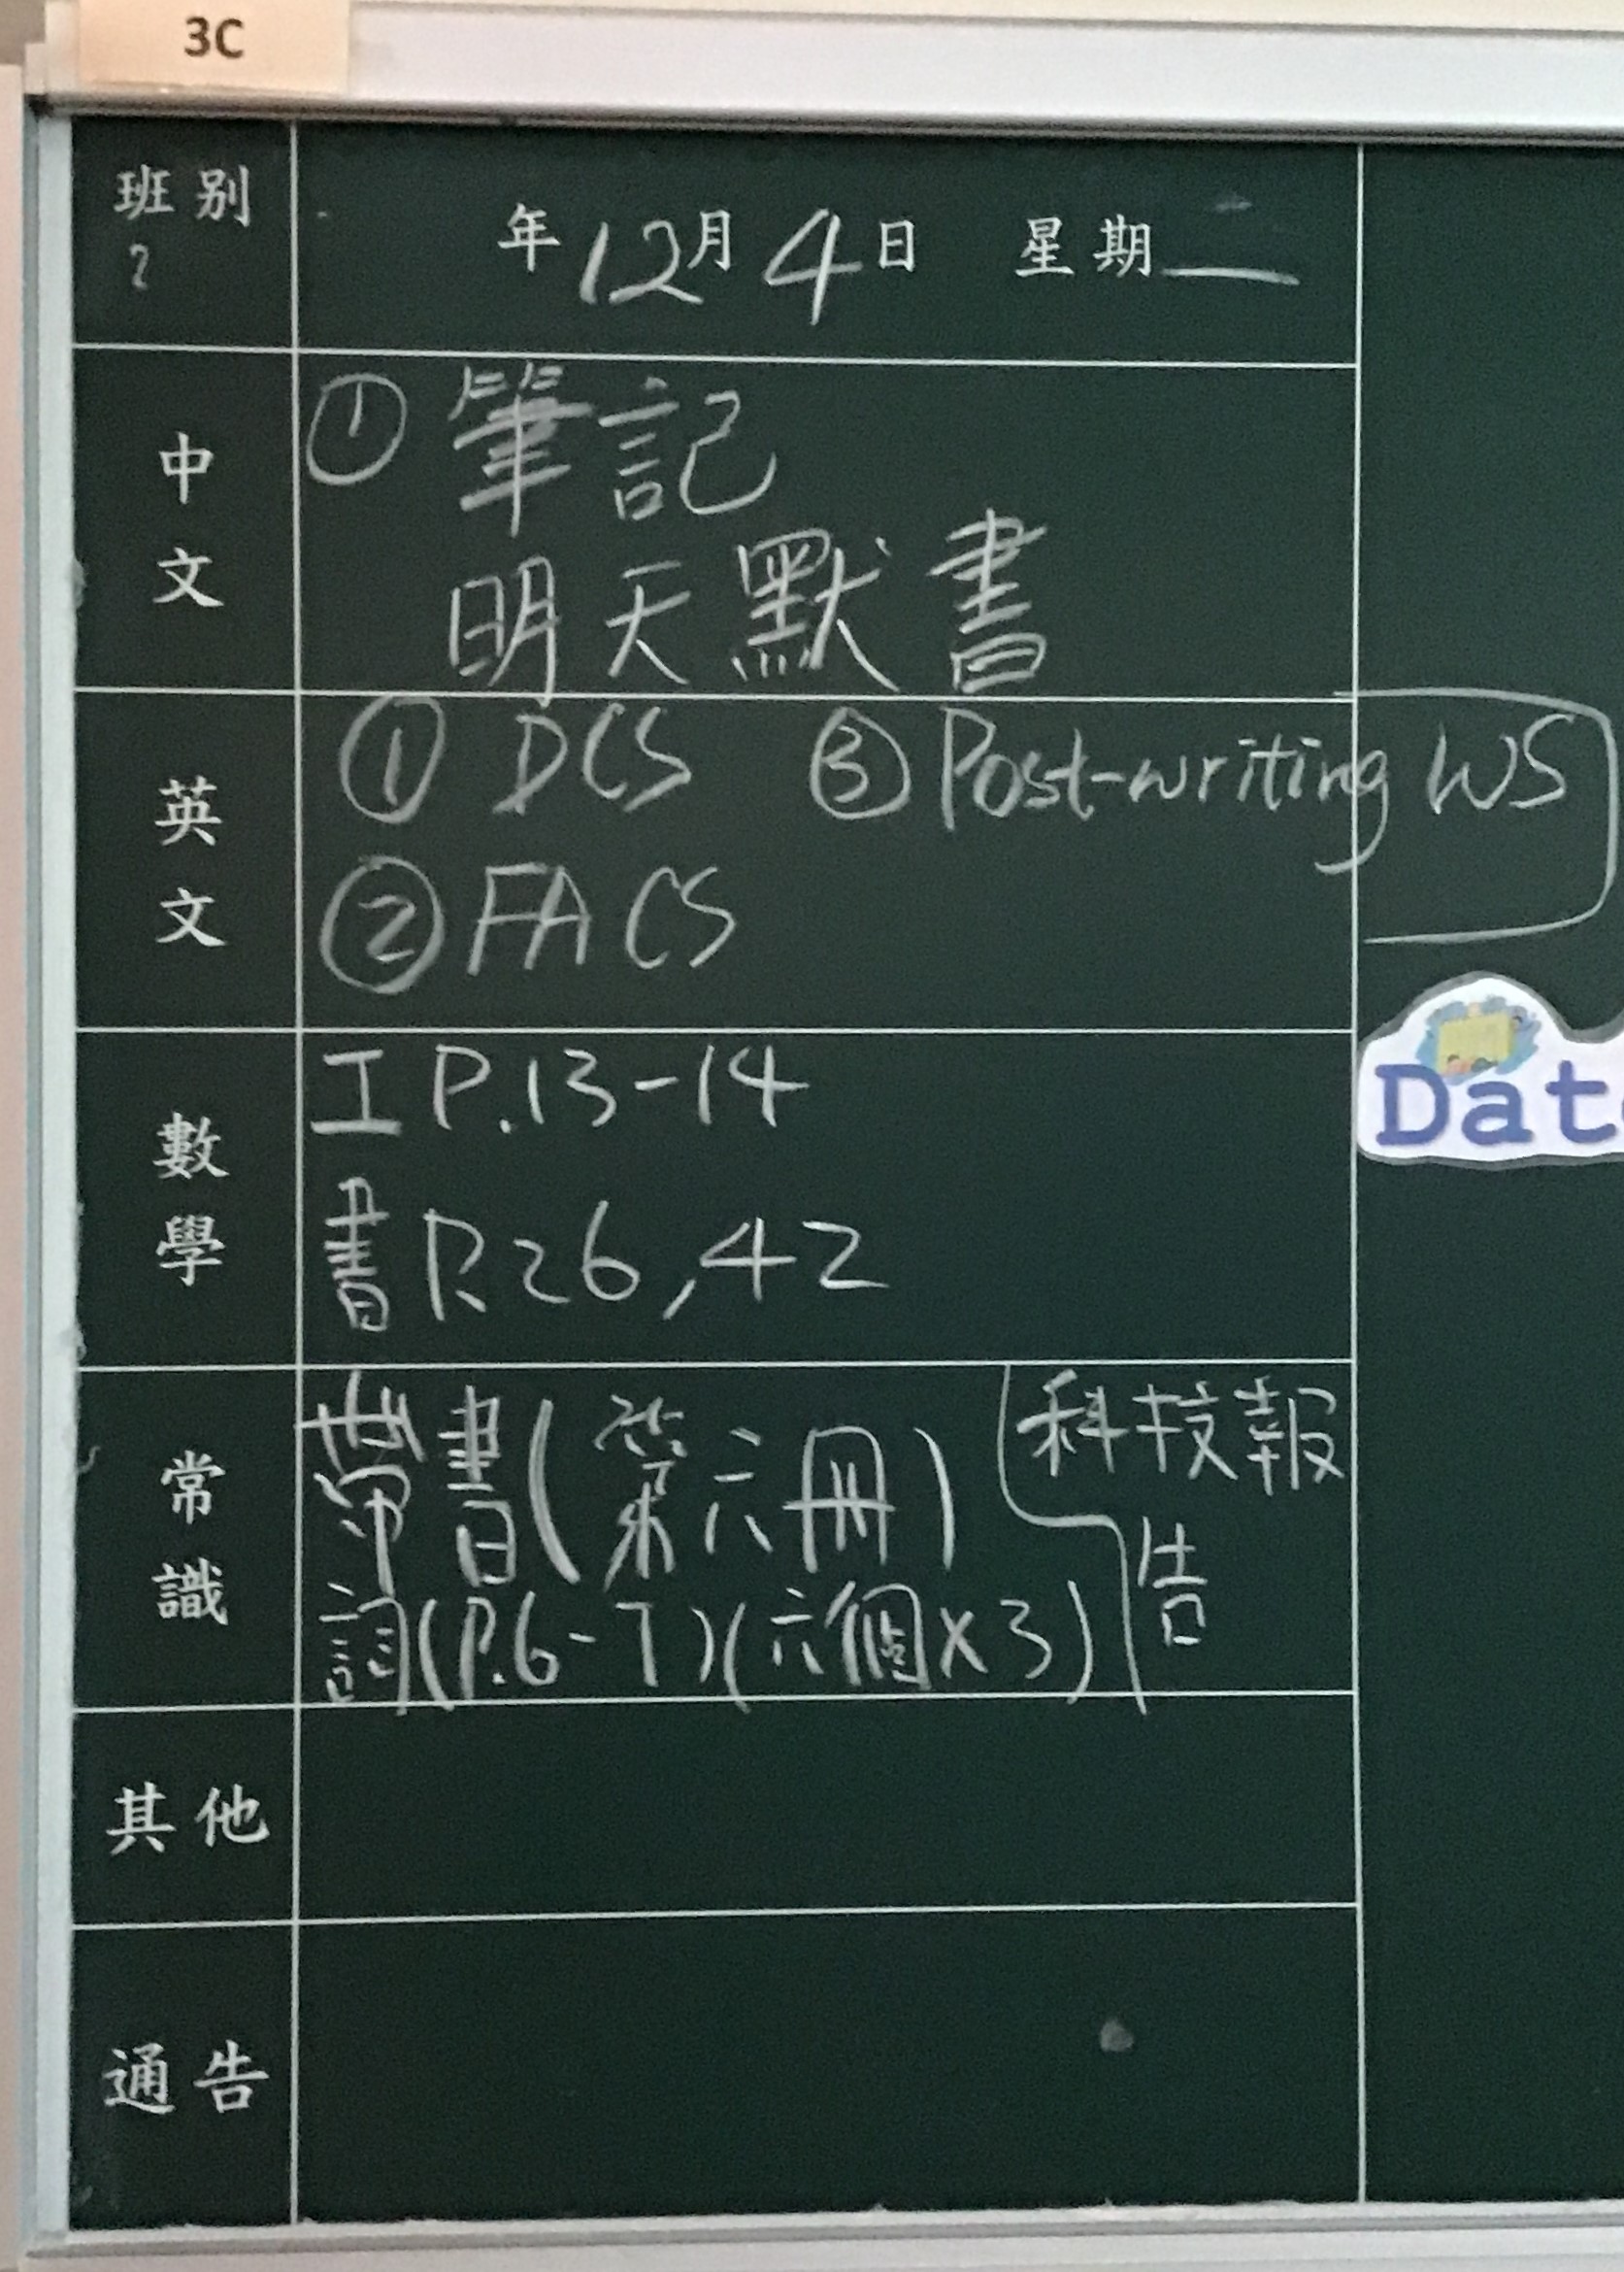 3C
班別
年12月4日 星期二
中文
① 筆記
明天默書
英文
① DCS ③ Post-writing WS
② FA CS
數學
工 P.13-14
書 P.26,42
常識
帶書(第六冊)
詞(P.6-7)(六個×3)
科技報
告
其他
通告
Dat